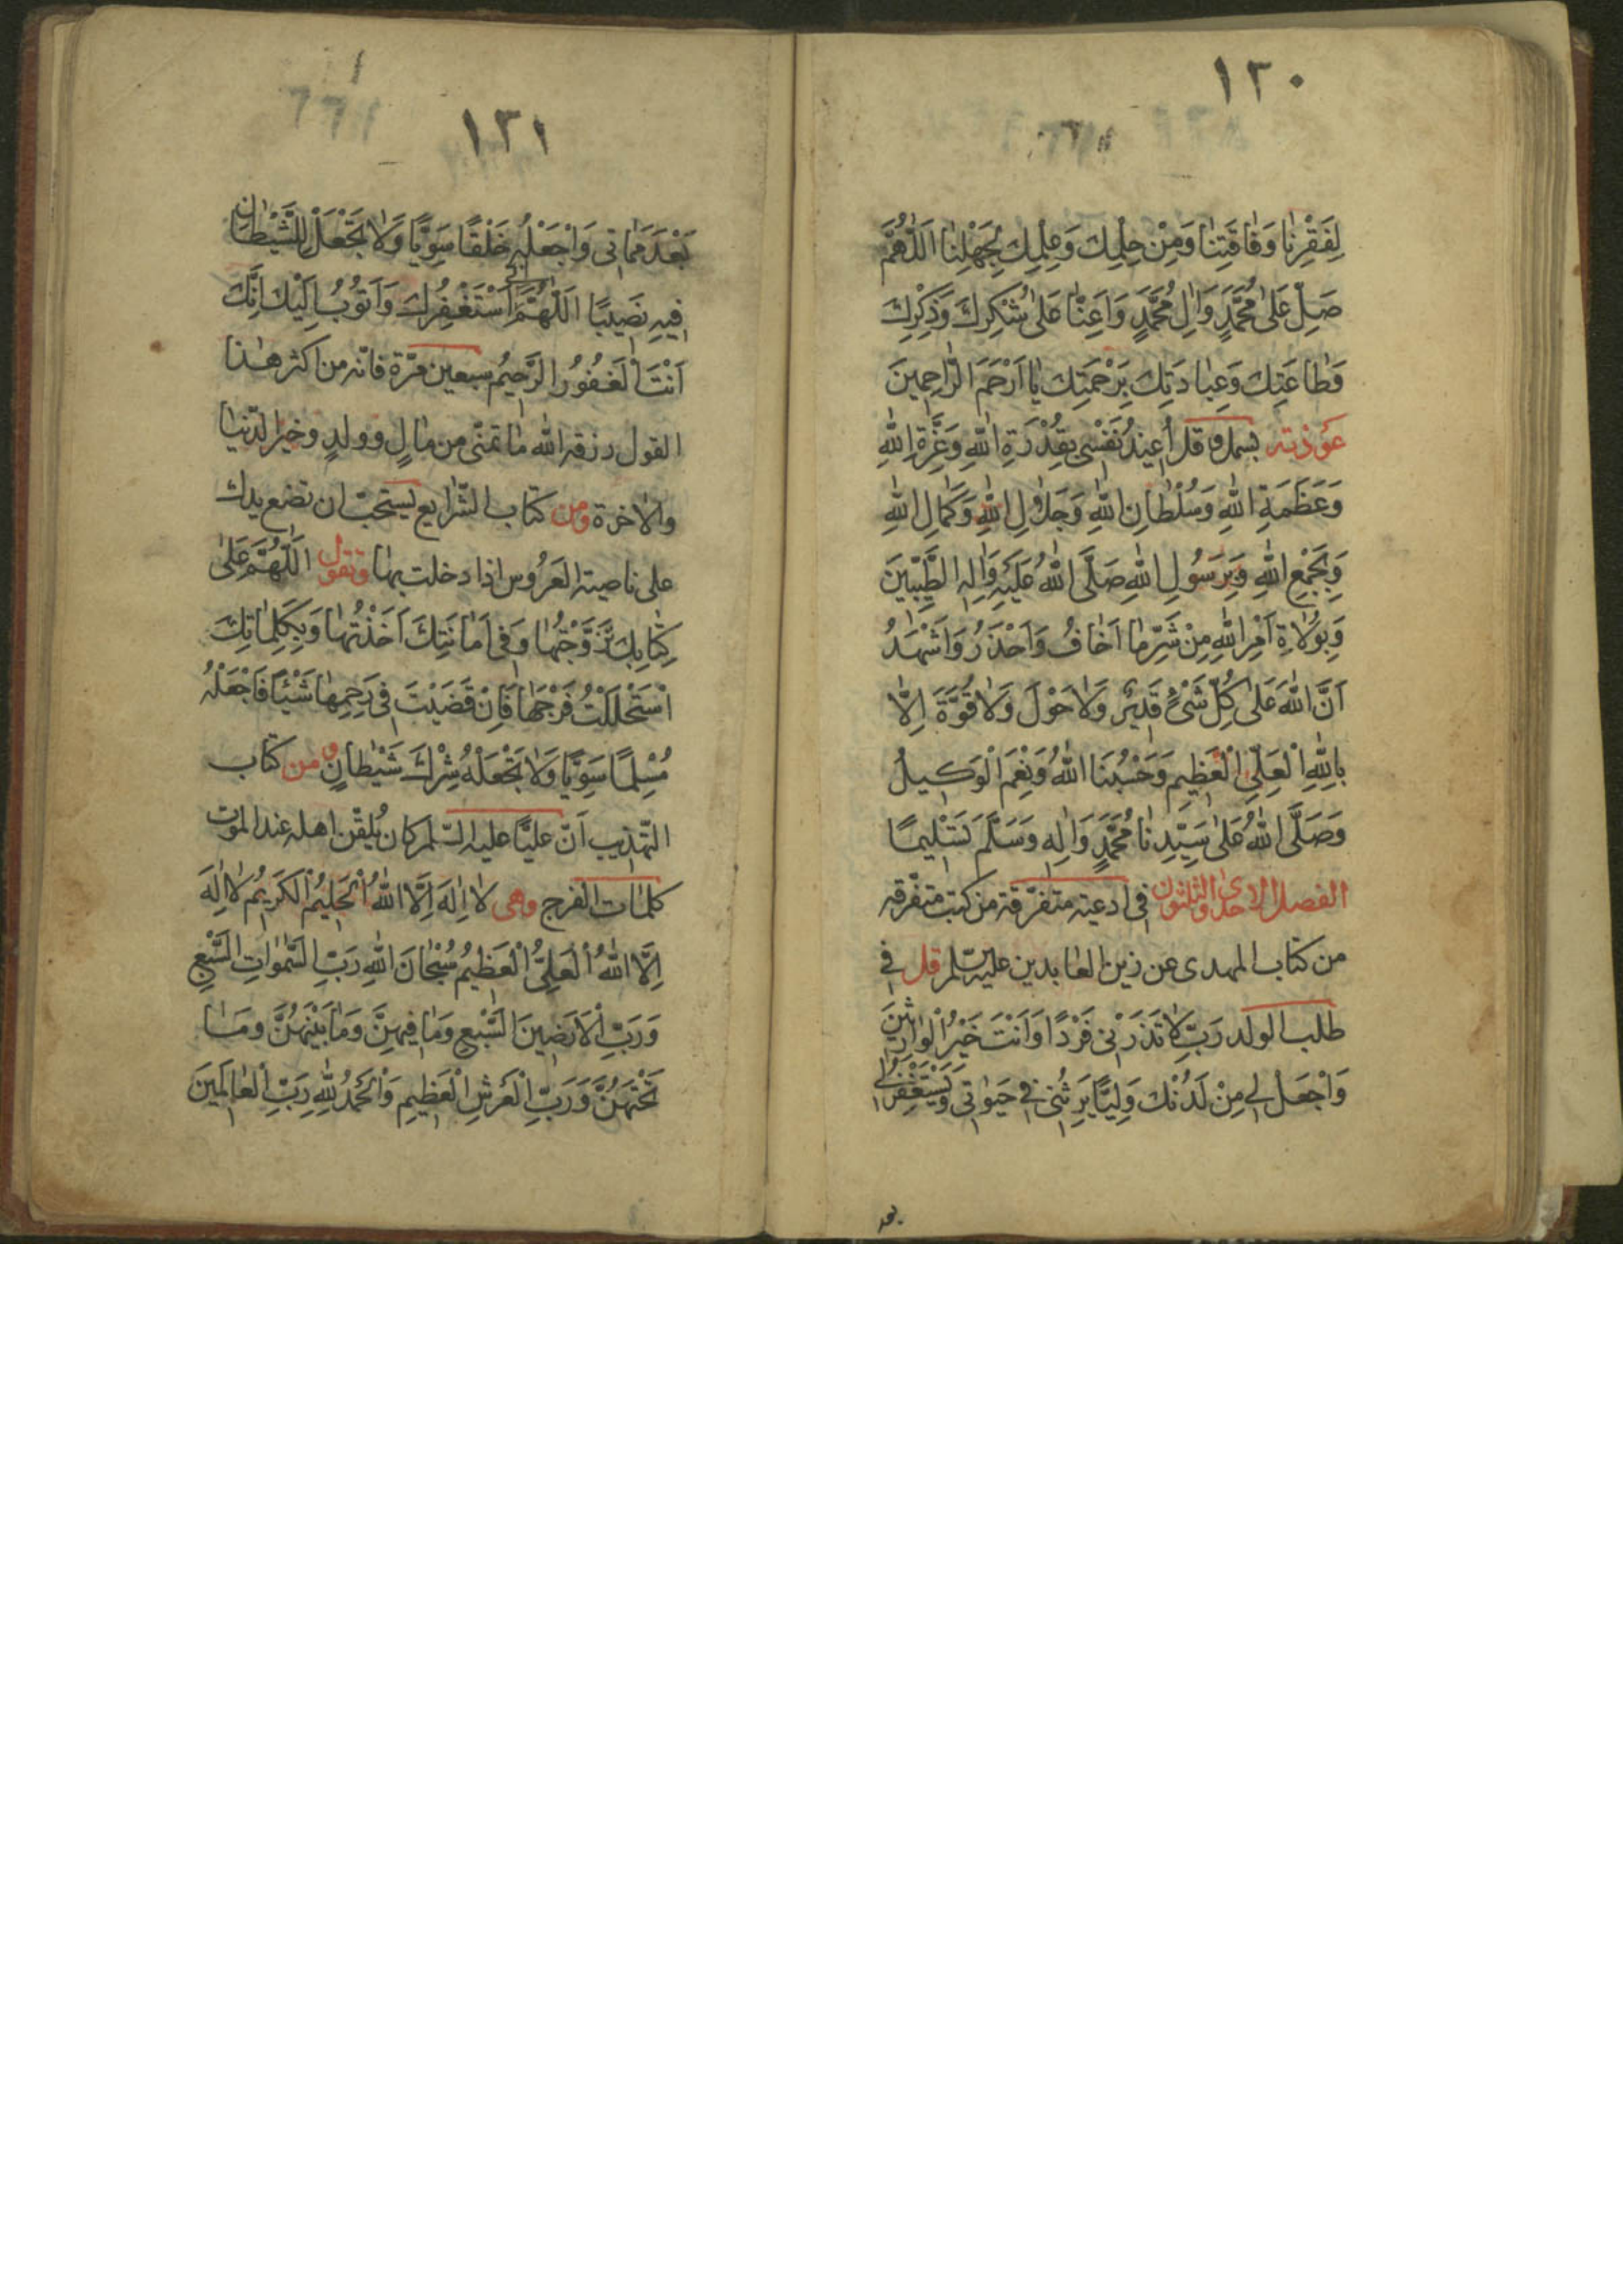 ١٢٠
لِفَقْرِنَا وَفَاقَتِنَا وَمِنْ حِلْمِكَ وَعِلْمِكَ لِجَهْلِنَا اَللّٰهُمَّ
صَلِّ عَلٰى مُحَمَّدٍ وَاٰلِ مُحَمَّدٍ وَاَعِنَّا عَلٰى شُكْرِكَ وَذِكْرِكَ
وَطَاعَتِكَ وَعِبَادَتِكَ بِرَحْمَتِكَ يَا اَرْحَمَ الرَّاحِمِينَ
عوذته بسمله قل اُعِيذُ نَفْسِى بِقُدْرَةِ اللهِ وَعِزَّةِ اللهِ
وَعَظَمَةِ اللهِ وَسُلْطَانِ اللهِ وَجَلَالِ اللهِ وَكَمَالِ اللهِ
وَبِجَمْعِ اللهِ وَبِرَسُولِ اللهِ صَلَّى اللهُ عَلَيْهِ وَاٰلِهِ الطَّيِّبِينَ
وَبِوُلَاةِ اَمْرِ اللهِ مِنْ شَرِّ مَا اَخَافُ وَاَحْذَرُ وَاَشْهَدُ
اَنَّ اللهَ عَلٰى كُلِّ شَىْءٍ قَدِيرٌ وَلَا حَوْلَ وَلَا قُوَّةَ اِلَّا
بِاللهِ الْعَلِىِّ الْعَظِيمِ وَحَسْبُنَا اللهُ وَنِعْمَ الْوَكِيلُ
وَصَلَّى اللهُ عَلٰى سَيِّدِنَا مُحَمَّدٍ وَاٰلِهِ وَسَلَّمَ تَسْلِيمًا
الفصل الاحدى والثلثون فى ادعية متفرّقة من كتب متفرّقه
من كتاب المهدى عن زين العابدين عليه السّلم قل فى
طلب الولد رَبِّ لَا تَذَرْنِى فَرْدًا وَاَنْتَ خَيْرُ الْوَارِثِينَ
وَاجْعَلْ لِى مِنْ لَدُنْكَ وَلِيًّا يَرِثُنِى فِى حَيٰوتِى وَيَسْتَغْفِرُ لِى
بعد
١٢١
بَعْدَ مَمَاتِى وَاجْعَلْهُ خَلْقًا سَوِيًّا وَلَا تَجْعَلْ لِلشَّيْطَانِ
فِيهِ نَصِيبًا اَللّٰهُمَّ اِنِّى اَسْتَغْفِرُكَ وَاَتُوبُ اِلَيْكَ اِنَّكَ
اَنْتَ الْغَفُورُ الرَّحِيمُ سبعين مرّة فانّه من اكثر هٰذا
القول رزقه الله ما تمنّى من مالٍ وولدٍ وخير الدّنيا
والاخرة ومن كتاب الشّرايع يستحبّ ان تضع يدك
على ناصية العَرُوس اذا دخلت بها وتقول اَللّٰهُمَّ عَلٰى
كِتَابِكَ تَزَوَّجْتُهَا وَفِى اَمَانَتِكَ اَخَذْتُهَا وَبِكَلِمَاتِكَ
اسْتَحْلَلْتُ فَرْجَهَا فَاِنْ قَضَيْتَ فِى رَحِمِهَا شَيْئًا فَاجْعَلْهُ
مُسْلِمًا سَوِيًّا وَلَا تَجْعَلْهُ شِرْكَ شَيْطَانٍ ومن كتاب
التّهذيب اَنّ عليًّا عليه السّلم كان يُلقّن اهله عند الموت
كلمات الفرج وهى لَا اِلٰهَ اِلَّا اللهُ الْحَلِيمُ الْكَرِيمُ لَا اِلٰهَ
اِلَّا اللهُ الْعَلِىُّ الْعَظِيمُ سُبْحَانَ اللهِ رَبِّ السَّمٰوَاتِ السَّبْعِ
وَرَبِّ الْاَرَضِينَ السَّبْعِ وَمَا فِيهِنَّ وَمَا بَيْنَهُنَّ وَمَا
تَحْتَهُنَّ وَرَبِّ الْعَرْشِ الْعَظِيمِ وَالْحَمْدُ لِلّٰهِ رَبِّ الْعَالَمِينَ